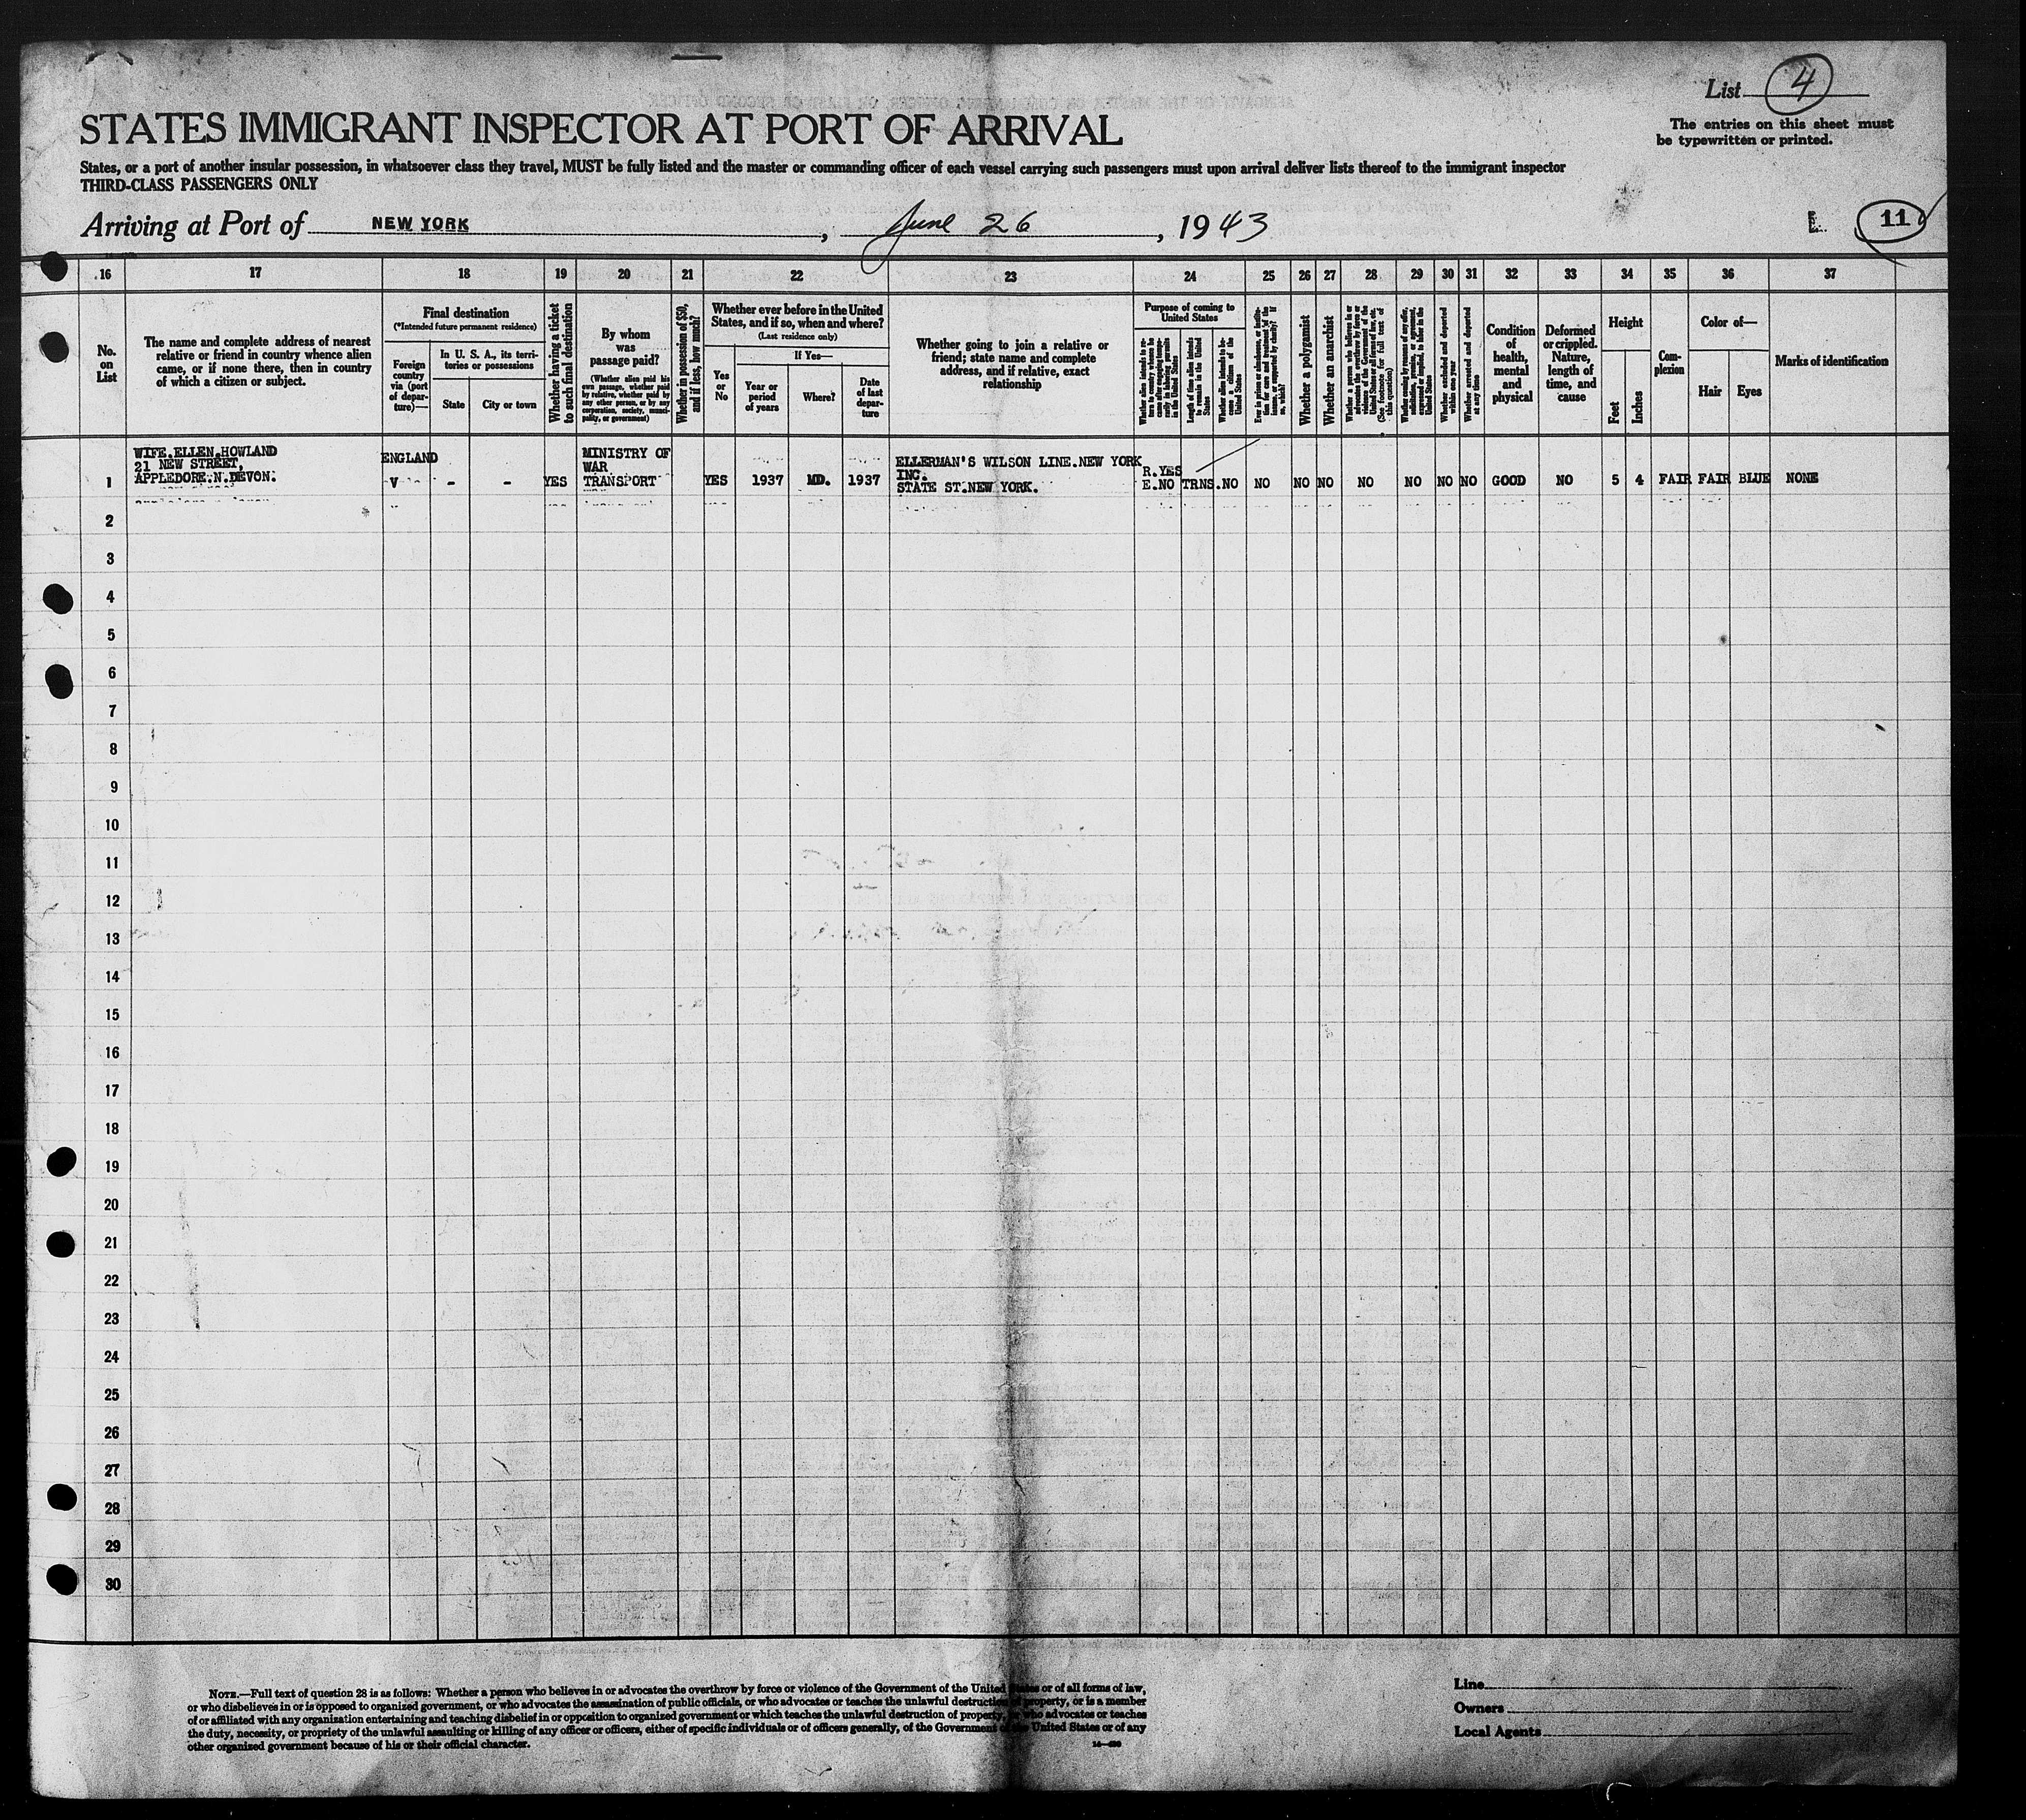 List 4
The entries on this sheet must
be typewritten or printed.
STATES IMMIGRANT INSPECTOR AT PORT OF ARRIVAL
States, or a port of another insular possession, in whatsoever class they travel, MUST be fully listed and the master or commanding officer of each vessel carrying such passengers must upon arrival deliver lists thereof to the immigrant inspector
THIRD-CLASS PASSENGERS ONLY
Arriving at Port of NEW YORK, June 26, 1943
11
16 17 18 19 20 21 22 23 24 25 26 27 28 29 30 31 32 33 34 35 36 37
No.
on
List
The name and complete address of nearest
relative or friend in country whence alien
came, or if none there, then in country
of which a citizen or subject.
Final destination
(*Intended future permanent residence)
Foreign
country
via (port
of depar-
ture)—
In U. S. A., its terri-
tories or possessions
State
City or town
Whether having a ticket
to such final destination
By whom
was
passage paid?
(Whether alien paid his
own passage, whether paid
by relative, whether paid by
any other person, or by any
corporation, society, munici-
pality, or government)
Whether in possession of $50,
and if less, how much?
Whether ever before in the United
States, and if so, when and where?
(Last residence only)
Yes
or
No
If Yes—
Year or
period
of years
Where?
Date
of last
depar-
ture
Whether going to join a relative or
friend; state name and complete
address, and if relative, exact
relationship
Purpose of coming to
United States
Length of time alien intends
to remain in the United
States
Whether alien intends to be-
come a citizen of the
United States
Whether a polygamist
Whether an anarchist
(See footnote for full text of
this question)
Whether excluded and deported
within one year
Whether arrested and deported
at any time
Condition
of
health,
mental
and
physical
Deformed
or crippled.
Nature,
length of
time, and
cause
Height
Feet
Inches
Com-
plexion
Color of—
Hair
Eyes
Marks of identification
WIFE.ELLEN.HOWLAND
21 NEW STREET,
APPLEDORE.N.DEVON.
ENGLAND
V - -
YES
MINISTRY OF
WAR
TRANSPORT
YES 1937 MD. 1937
ELLERMAN'S WILSON LINE.NEW YORK
INC.
STATE ST.NEW YORK.
R.YES
E.NO TRNS.NO NO NO NO NO NO NO NO GOOD NO 5 4 FAIR FAIR BLUE NONE
1
2
3
4
5
6
7
8
9
10
11
12
13
14
15
16
17
18
19
20
21
22
23
24
25
26
27
28
29
30
NOTE.—Full text of question 28 is as follows: Whether a person who believes in or advocates the overthrow by force or violence of the Government of the United States or of all forms of law,
or who disbelieves in or is opposed to organized government, or who advocates the assassination of public officials, or who advocates or teaches the unlawful destruction of property, or is a member
of or affiliated with any organization entertaining and teaching disbelief in or opposition to organized government or which teaches the unlawful destruction of property, or who advocates or teaches
the duty, necessity, or propriety of the unlawful assaulting or killing of any officer or officers, either of specific individuals or of officers generally, of the Government of the United States or of any
other organized government because of his or their official character.
Line
Owners
Local Agents